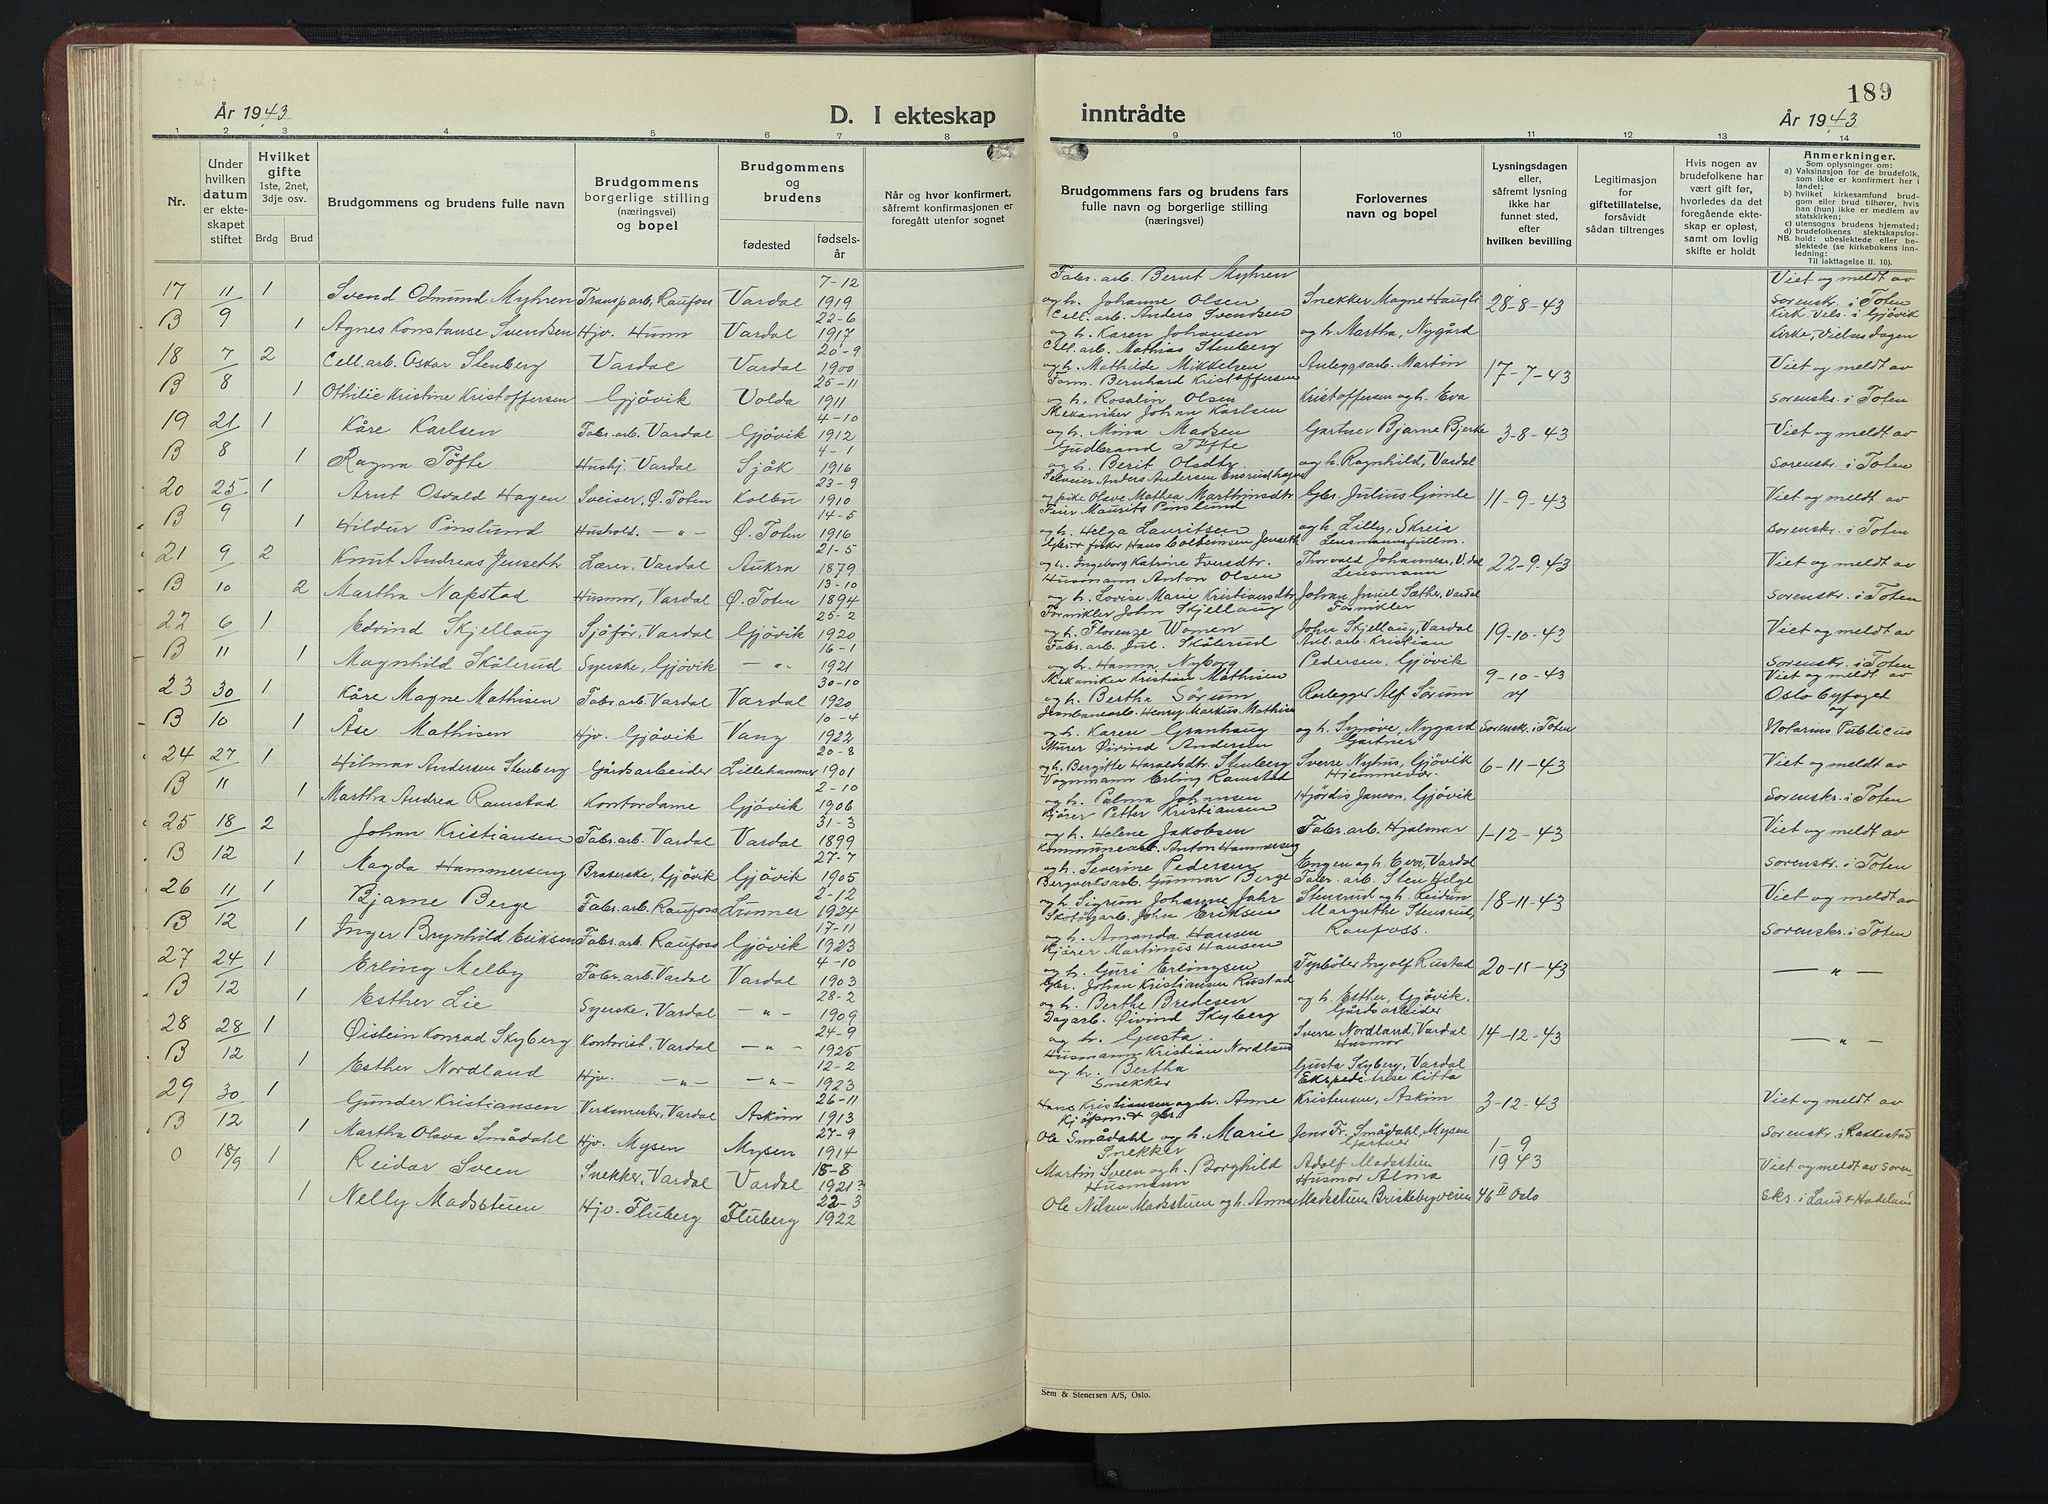 189
År 1943
D. I ekteskap
inntrådte
År 1943
1 2 3 4 5 6 7 8
9 10 11 12 13 14
Nr.
Under hvilken datum er ekteskapet stiftet
Hvilket gifte
1ste, 2net, 3dje osv.
Brdg Brud
Brudgommens og brudens fulle navn
Brudgommens borgerlige stilling (næringsvei) og bopel
Brudgommens og brudens
fødested
fødselsår
Når og hvor konfirmert, såfremt konfirmasjonen er foregått utenfor sognet
Brudgommens fars og brudens fars fulle navn og borgerlige stilling (næringsvei)
Forlovernes navn og bopel
Lysningsdagen eller, såfremt lysning ikke har funnet sted, efter hvilken bevilling
Legitimasjon for giftetillatelse, forsåvidt sådan tiltrenges
Hvis nogen av brudefolkene har vært gift før, hvorledes da det foregående ekteskap er opløst, samt om lovlig skifte er holdt
Anmerkninger.
Som oplysninger om:
a) Vaksinasjon for de brudefolk, som ikke er konfirmert her i landet;
b) hvilket kirkesamfund brudgom eller brud tilhører, hvis han (hun) ikke er medlem av statskirken;
c) utensogns brudens hjemsted;
d) brudefolkenes slektskapsforhold: ubeslektede eller beslektede (se kirkebokens innledning:
NB.
Til iakttagelse II. 10).
17 11/9 1 Svend Odmund Myhren Transp.arb. Raufoss Vardal 7-12 1919 Fabr. arb. Bernt Myhren og h. Johanne Olsen Snekker Magne Haugli 28-8-43 Viet og meldt av sorenskr. i Toten
B 1 Agnes Konstanse Svendsen Hjv. Hunn Vardal 22-6 1917 Cell. arb. Anders Svendsen og h. Karen Johansen og h. Martha, Nygård Kirk. Vels. i Gjøvik Kirke, Vielsesdagen
18 7/8 2 Cell.arb. Oskar Stenberg Vardal Vardal 20-9 1900 Cell. arb. Mathias Stenberg og h. Mathilde Mikkelsen Anleggsarb. Martin 17-7-43 Viet og meldt av
B 1 Othilie Kristine Kristoffersen Gjøvik Volda 25-11 1911 Form. Bernhard Kristoffersen og h. Rosalin Olsen Kristoffersen og h. Eva sorenskr. i Toten
19 21/8 1 Kåre Karlsen Fabr. arb. Vardal Gjøvik 4-10 1912 Mekaniker Johan Karlsen og h. Mina Madsen Gartner Bjarne Bjerke 3-8-43 Viet og meldt av
B 1 Ragna Tøfte Hushj. Vardal Sjåk 4-1 1916 Gudbrand Tøfte og h. Berit Olsdtr. og h. Ragnhild, Vardal sorenskr. i Toten
20 25/9 1 Arnt Osvald Hagen Sveiser, Ø. Toten Kolbu 23-9 1910 Selveier Anders Andersen Ensrudhagen og pike Olave Mathea Marthinsdtr Gbr. Julius Gimle 11-9-43 Viet og meldt av
B 1 Hildur Pinslund Hushold. - " - Ø. Toten 14-5 1916 Feier Maurits Pinslund og h. Helga Lauritsen og h. Lilly, Skreia sorenskr. i Toten
21 9/10 2 Knut Andreas Jenseth Lærer, Vardal Aukra 21-5 1879 Gbr. & fisker Hans Jenseth og h. Ingeborg Katrine Iversdtr. Lensmannsfullm. Thorvald Johannese, V.dal 22-9-43 Viet og meldt av
B 2 Martha Napstad Husmor, Vardal Ø. Toten 13-10 1894 Husmann Anton Olsen og h. Lovise Marie Kristiansdtr Lensmann Johan Juuel Sæther, Vardal sorenskr. i Toten
22 6/11 1 Edvind Skjellaug Sjåfør, Vardal Gjøvik 25-2 1920 Fornikler John Skjellaug og h. Florenze Women Fornikler John Skjellaug, Vardal 19-10-43 Viet og meldt av
B 1 Magnhild Skålerud Syerske, Gjøvik - " - 16-1 1921 Fabr. arb. Jul. Skålerud og h. Hanna Nyborg Anl. arb. Kristian Pedersen, Gjøvik sorenskr. i Toten
23 30/10 1 Kåre Magne Mathisen Fabr. arb. Vardal Vardal 30-10 1920 Mekaniker Kristian Mathisen og h. Bertha Sørum Rørlegger Alf Sørum 9-10-43 v/ Viet og meldt av Oslo Byfoged og
B 1 Åse Mathisen Hjv. Gjøvik Vang 10-4 1922 Jernbanearb. Henry Markus Mathisen og h. Karen Granhaug og h. Synøve, Nygard sorensk. i Toten Notarius Publicus
24 27/11 1 Hilmar Andersen Stenberg Gårdsarbeider Lillehammer 20-8 1901 Murer Øivind Andersen og h. Bergitte Haraldsdtr. Stenberg Gartner Sverre Nyhus, Gjøvik 6-11-43 Viet og meldt av
B 1 Martha Andrea Ramstad Kontordame Gjøvik 2-10 1906 Vognmann Erling Ramstad og h. Palma Johnsen Hjemmevær. Hjørdis Janson, Gjøvik Sorenskr. i Toten
25 18/12 2 Johan Kristiansen Fabr. arb. Vardal Vardal 31-3 1899 Kjører Petter Kristiansen og h. Helene Jakobsen Fabr. arb. Hjalmar 1-12-43 Viet og meldt av
B 1 Magda Hammerseng Braserske, Gjøvik Gjøvik 27-7 1905 Kommunearb. Anton Hammerseng og h. Severine Pedersen Engen og h. Eva, Vardal sorenskr. i Toten
26 11/12 1 Bjarne Berge Fabr. arb. Raufoss Lunner 2-12 1924 Bergverksarb. Gunnar Berge og h. Sigrun Johanne Jahr Fabr. arb. Sten Helge Stensrud og h. Reidun 18-11-43 Viet og meldt av
B 1 Inger Brynhild Eriksen Fabr. arb. Raufoss Gjøvik 17-11 1923 Skotøyarb. John Eriksen og h. Amanda Hansen Margrethe Stensrud, Raufoss. sorenskr. i Toten
27 24/12 1 Erling Melby Fabr. arb. Vardal Vardal 4-10 1903 Kjører Martinus Hansen og h. Guri Erlingsen Typbøter Ingolf Rustad 20-11-43 — " —
B 1 Esther Lie Syerske, Vardal - " - 28-2 1909 Gbr. Johan Kristiansen Rustad og h. Berthe Bredesen og h. Esther, Gjøvik.
28 28/12 1 Øistein Konrad Skyberg Kontorist, Vardal - " - 24-9 1925 Dagarb. Øivind Skyberg og h. Gusta. Gårdsarbeider Sverre Nordland, Vardal 14-12-43 — " —
B 1 Esther Nordland Hjv. - " - - " - 12-2 1923 Husmann Kristian Nordland og h. Bertha Husmor Gusta Skyberg, Vardal
29 30/12 1 Gunder Kristiansen Verksmester, Vardal Askim 26-11 1913 Snekker Hans Kristiansen og h. Anne Ekspeditrise Kitta Kristensen, Askim 3-12-43 Viet og meldt av
B 1 Martha Olava Smådahl Hjv. Mysen Mysen 27-9 1914 Kjøpm. & gbr. Ole Smådahl og h. Marie Jens Fr. Smådahl, Mysen sorenskr. i Rakkestad
0 18/9 1 Reidar Sveen Snekker, Vardal Vardal 15-8 1921 Snekker Martin Sveen og h. Borghild Gartner Adolf Madsstien 1-9 1943 Viet og meldt av soren-
1 Nelly Madsstuen Hjv. Fluberg Fluberg 22-3 1922 Husmann Ole Nilsen Madsstuen og h. Anna Husmor Alma Madsstuen Briskebyveien 46 II Oslo skr. i Land & Hadeland
Sem & Stenersen A/S, Oslo.